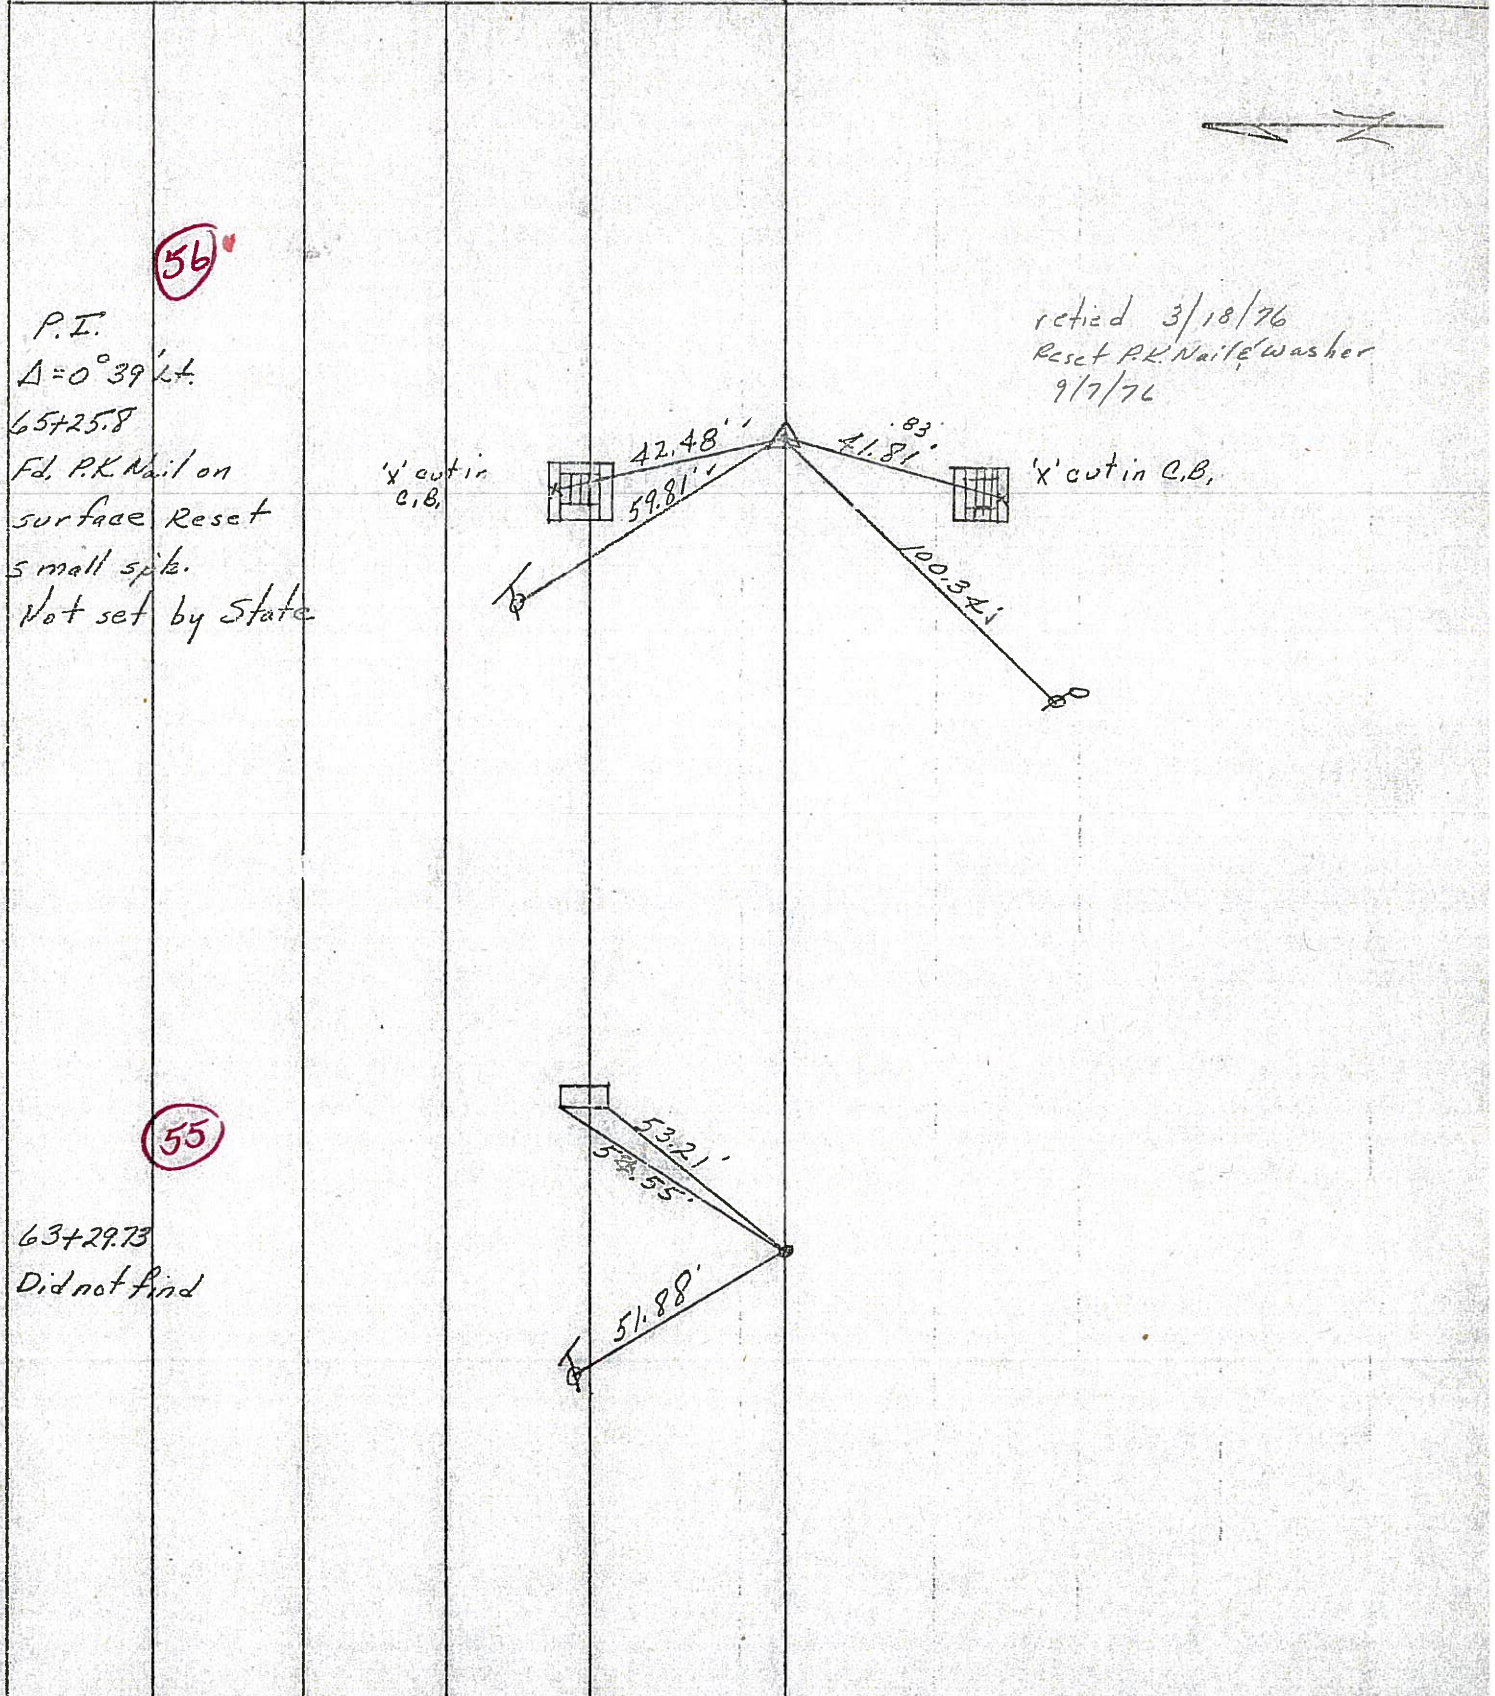 56
P.I.
Δ=0°39' Lt.
65+25.8
Fd. P.K. Nail on
surface Reset
small spk.
Not set by State
retied 3/18/76
Reset P.K. Nail & washer
9/7/76
42.48'
59.81'
.83
41.81'
100.34'
'X' cut in
C.B.
'X' cut in C.B.
55
63+29.73
Did not find
53.21'
51.88'